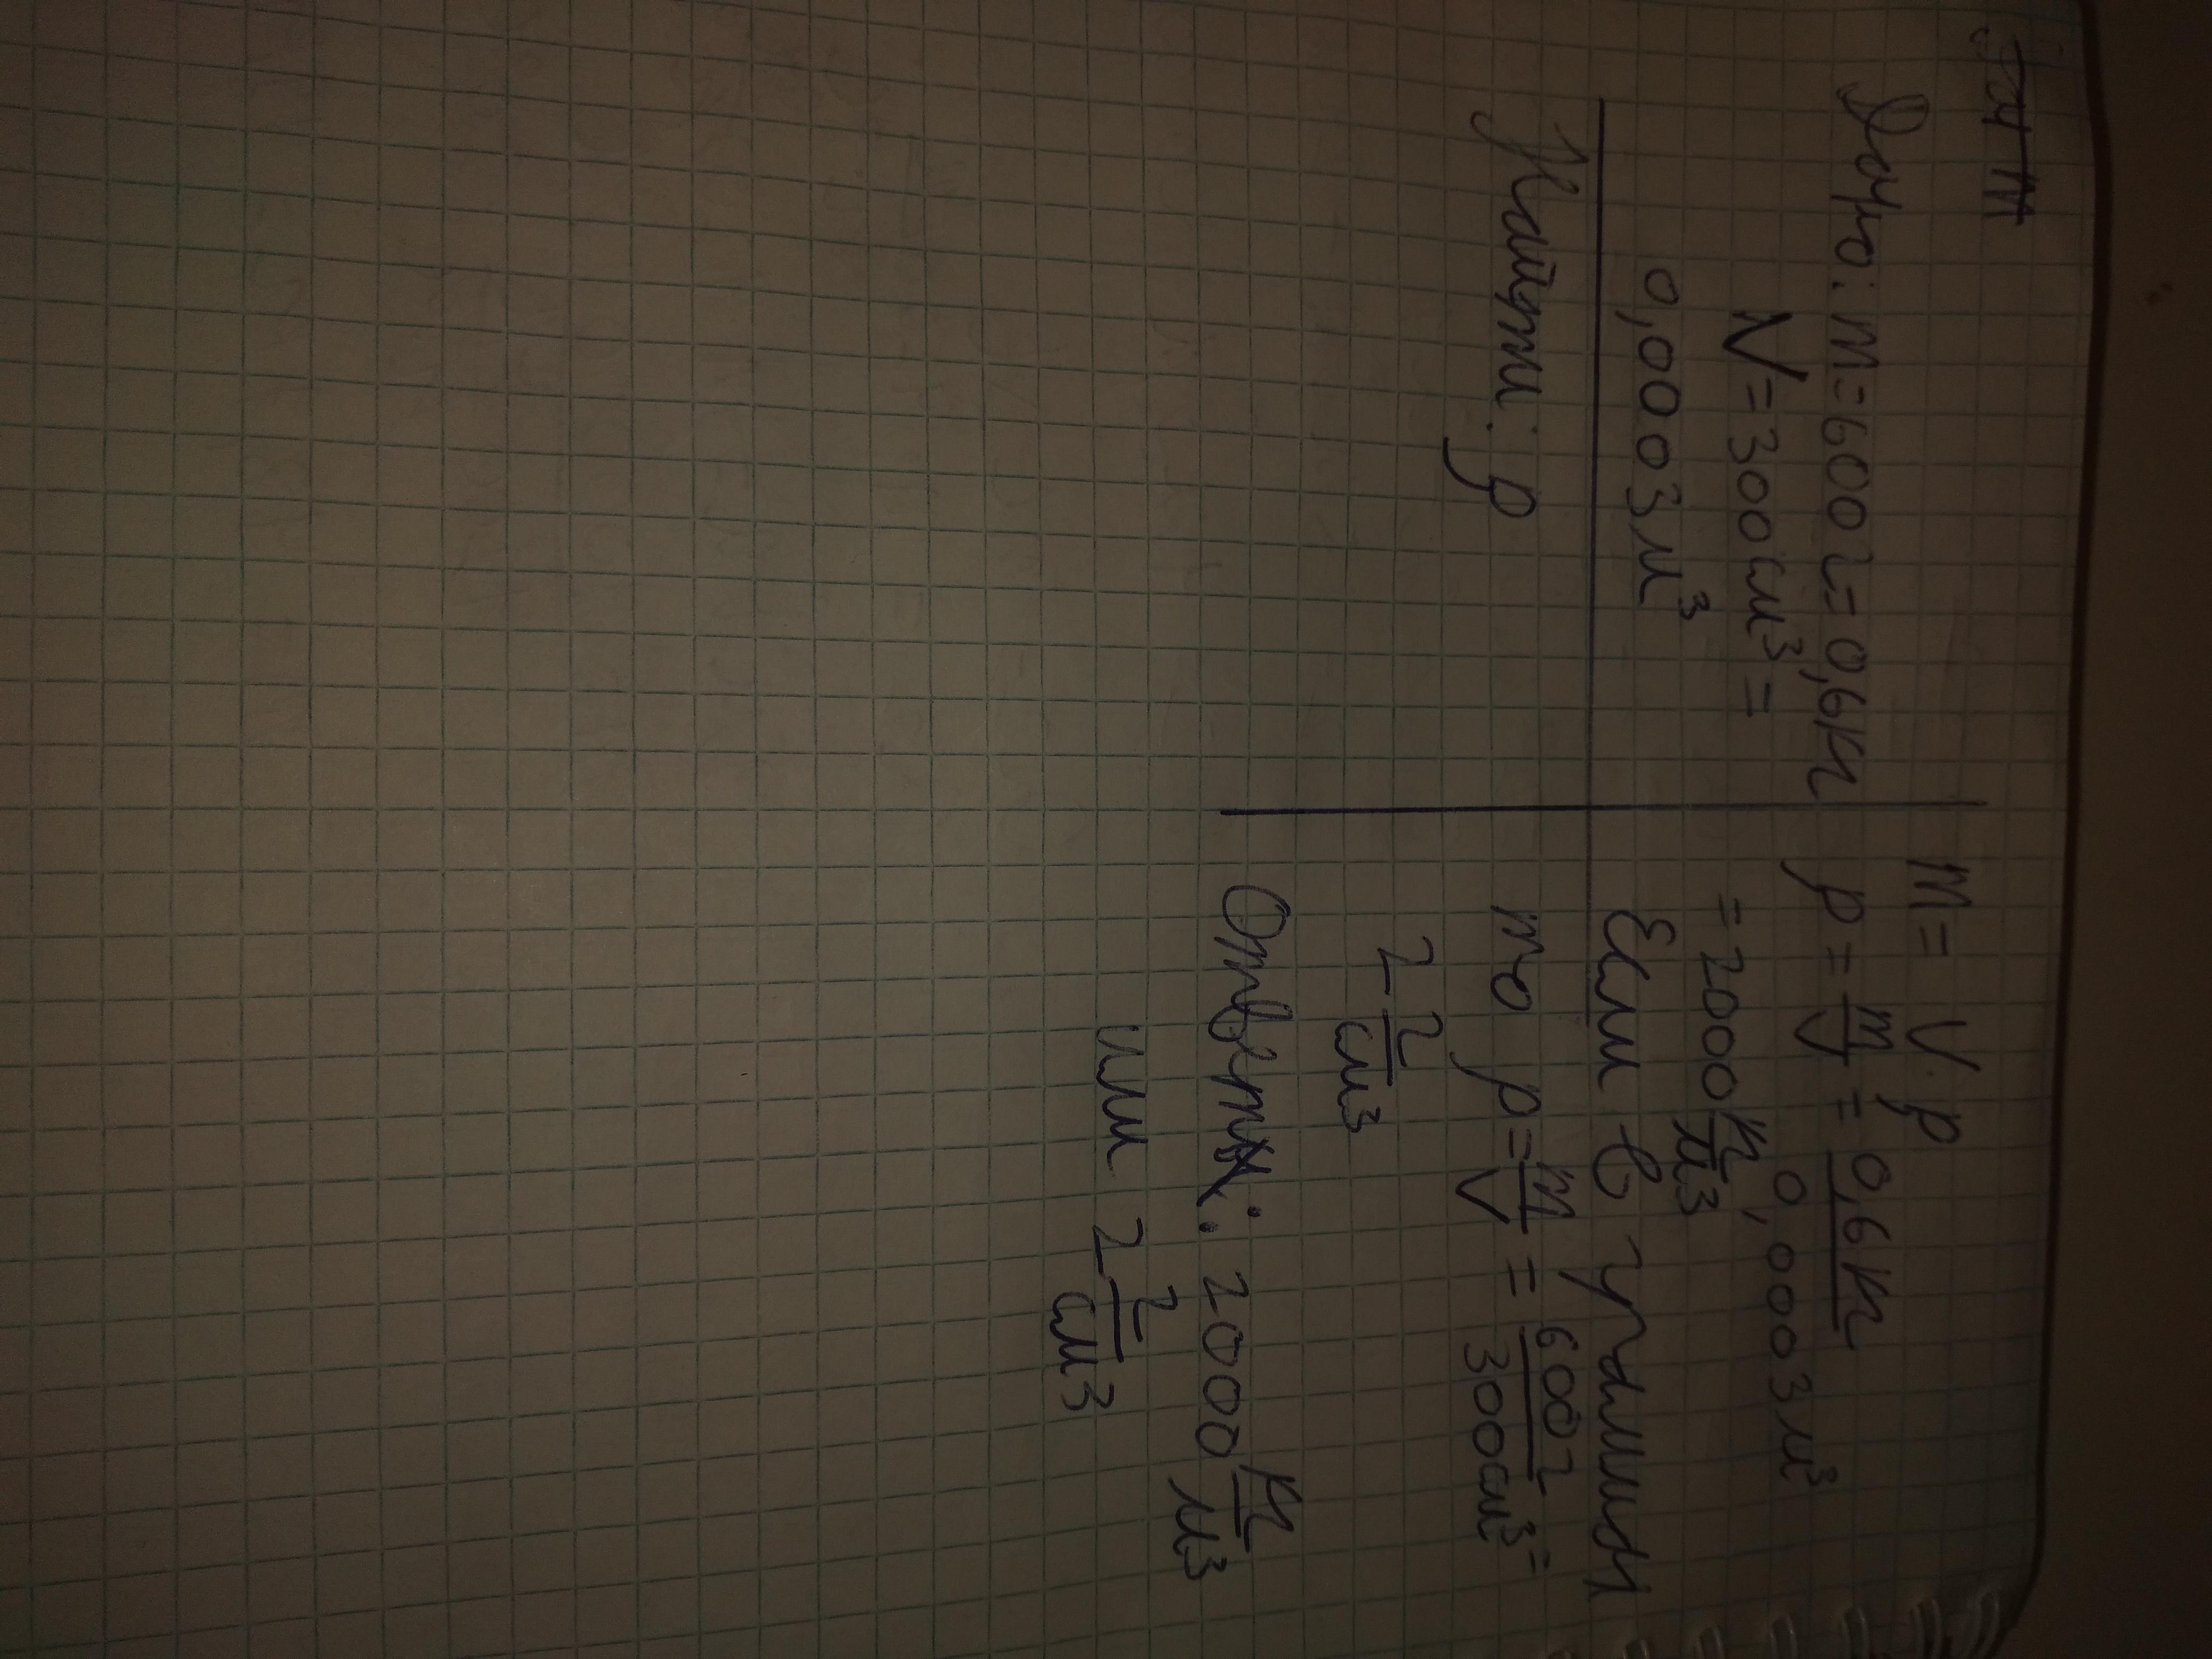 Дано: m=600г=0,6кг
V=300см³=
0,0003м³
Найти: p
m= V·p
p = m/V = 0,6кг/0,0003м³
= 2000 кг/м³
Если в граммах
то p = m/V = 600г/300см³ =
2 г/см³
Ответ: 2000 кг/м³
или 2 г/см³